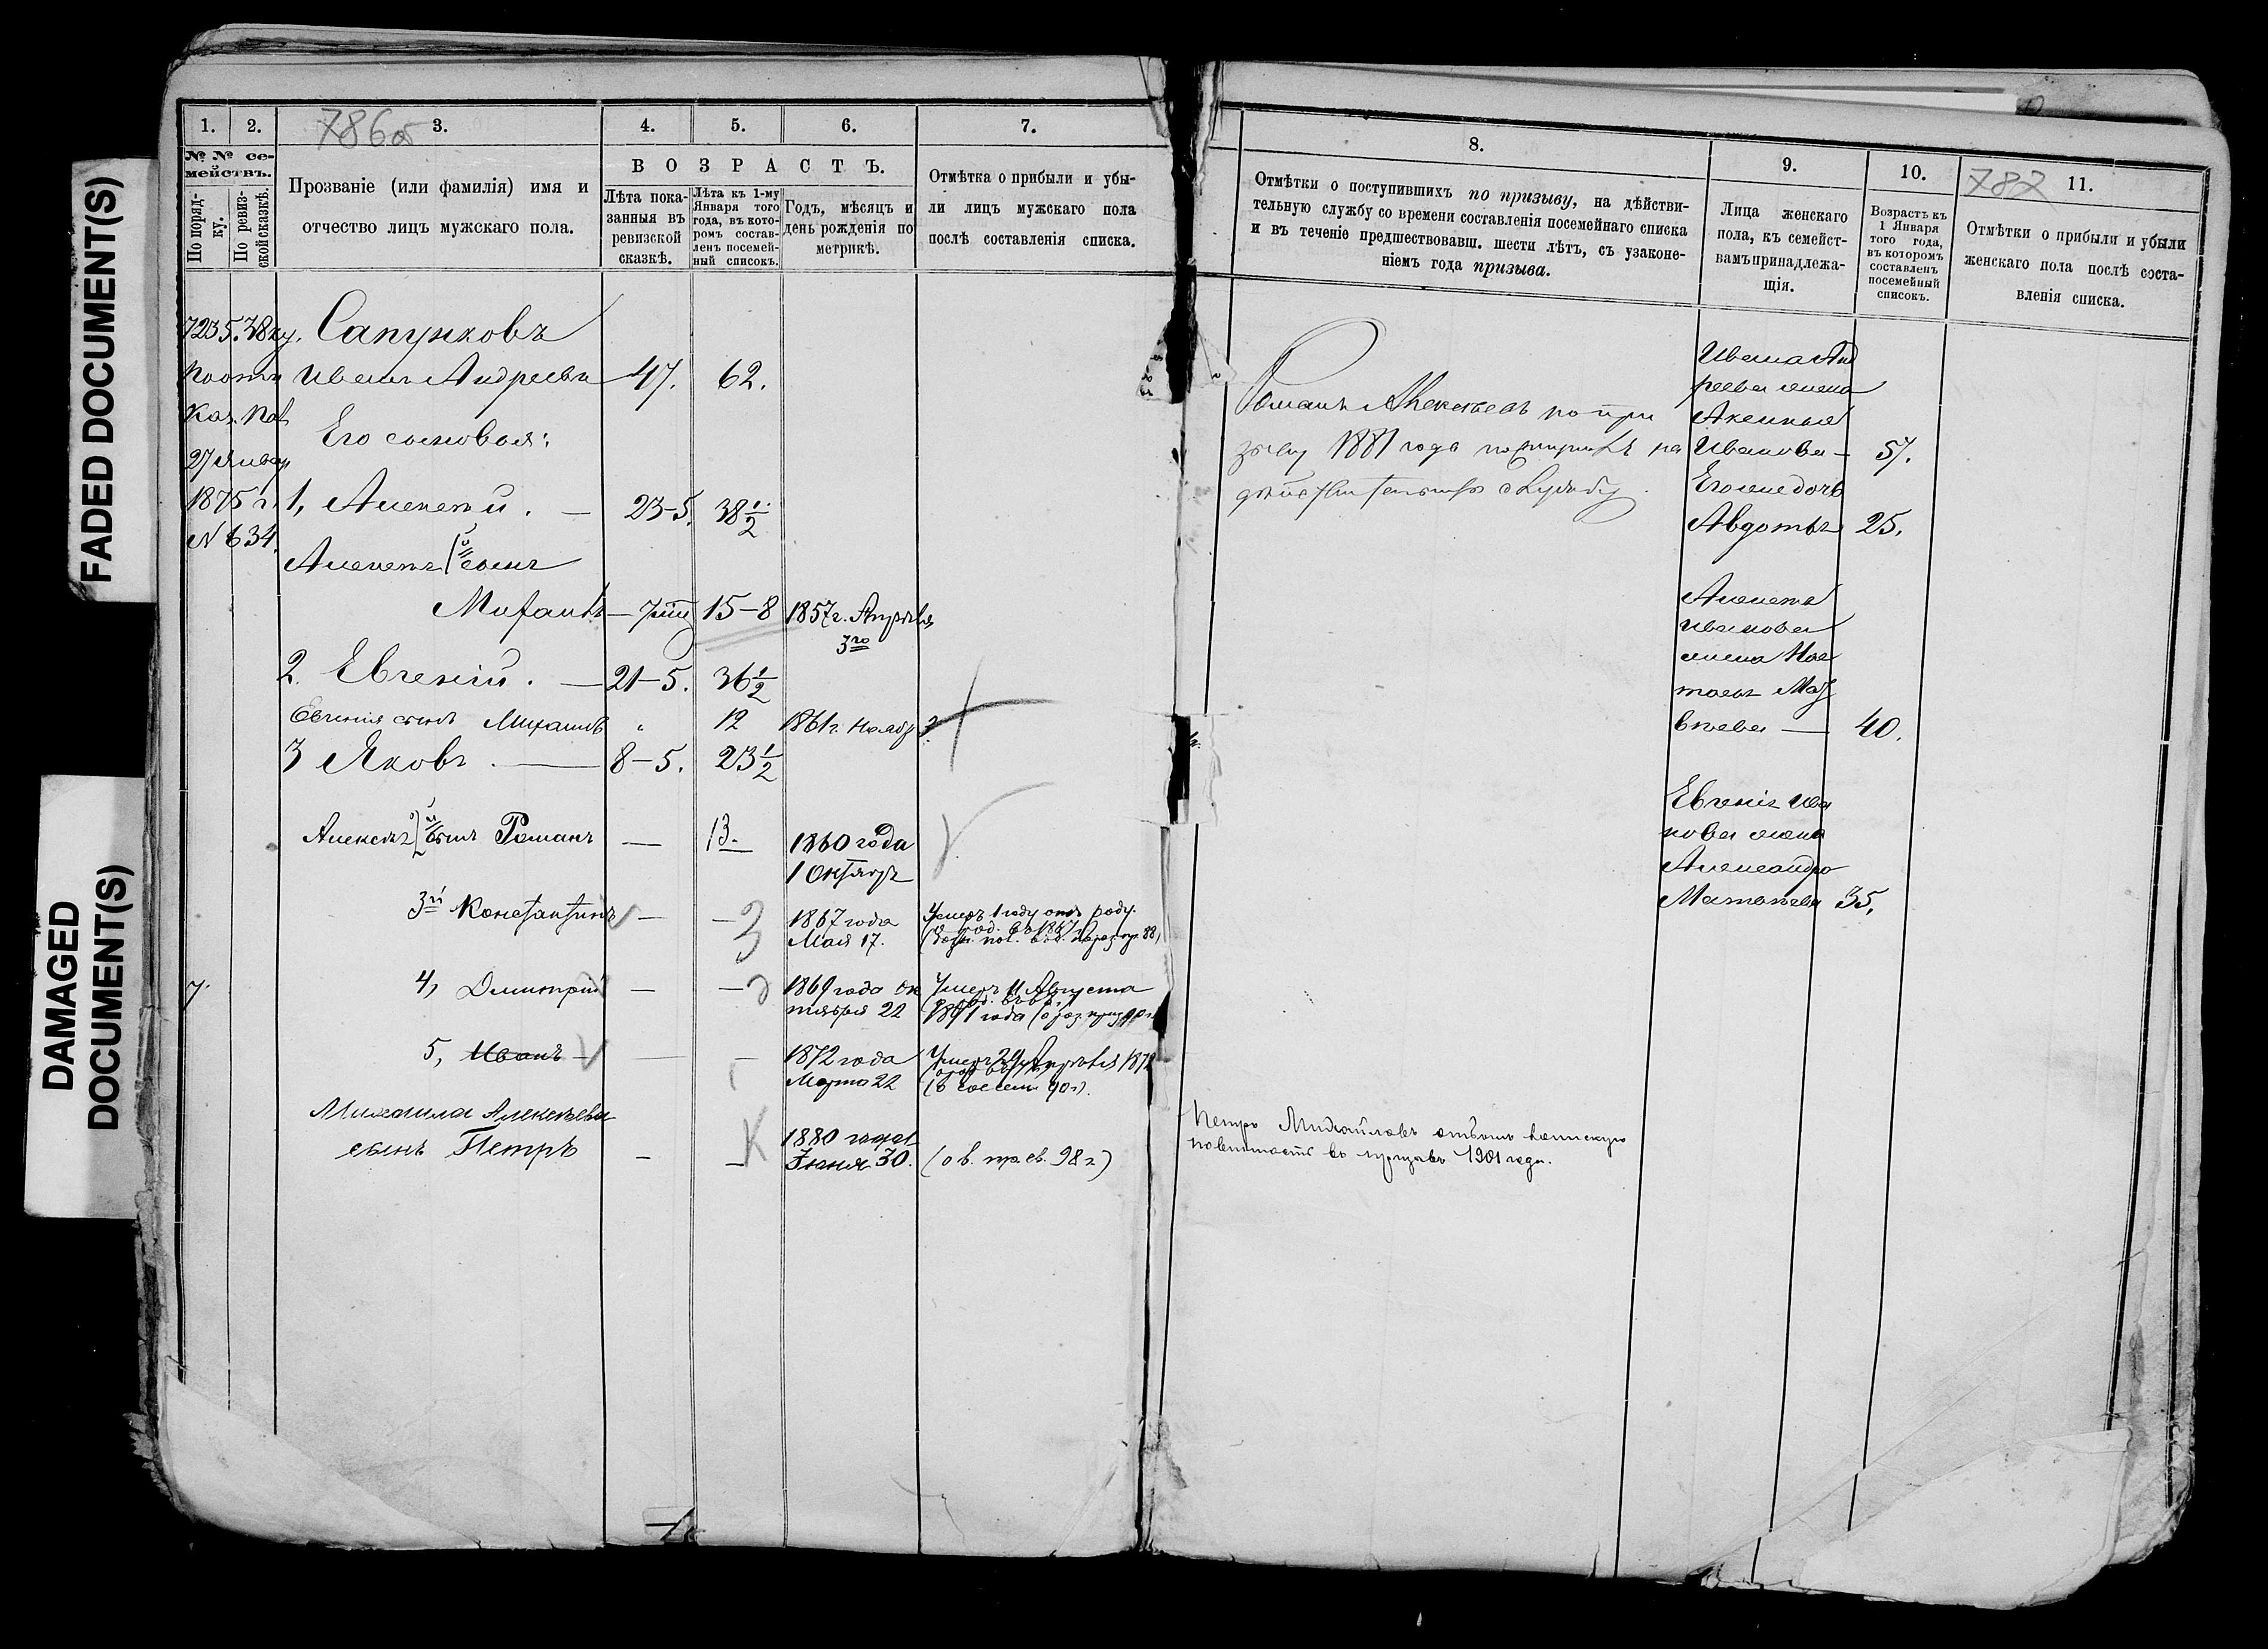 FADED DOCUMENT(S)
DAMAGED
DOCUMENT(S)
1. 2. 3. 4. 5. 6. 7.
786об
№№ се-
мействъ.
По поряд-
ку.
По ревиз-
ской сказкѣ.
Прозваніе (или фамилія) имя и
отчество лицъ мужскаго пола.
ВОЗРАСТЪ.
Лѣта пока-
занныя въ
ревизской
сказкѣ.
Лѣта къ 1-му
Января того
года, въ кото-
ромъ состав-
ленъ посемей-
ный списокъ.
Годъ, мѣсяцъ и
день рожденія по
метрикѣ.
Отмѣтка о прибыли и убы-
ли лицъ мужскаго пола
послѣ составленія списка.
723 5.38 Сапунковъ
Иванъ Андреевъ 47. 62.
Его сыновья:
27 Январ
1875 г.
№ 634.
1, Алексѣй. — 23-5. 38½
Алексѣя 1й сынъ
Михаилъ — 15-8 1857г. Апрѣля
3го
2. Евгеній. — 21-5. 36½
Евгенія сынъ Михаилъ " 12 1861г. Ноябр 3
3 Яковъ. — 8-5. 23½
Алексѣя 2й сынъ Романъ — 13. 1860 года
1 Октябр
3й Константинъ — — 3 1867 года
Мая 17.
Умеръ 1 году отъ роду.
7.
4, Дмитрій — — 1869 года ок
тября 22
Умеръ 11 Августа
1891 года
5, Иванъ — — — 1872 года
Марта 22
Умеръ 29 Апрѣля 1872
Михаила Алексѣева
сынъ Петръ — — К 1880 года
Іюня 30. (о в. пр. св. 98 г)
8. 9. 10. 11.
787
Отмѣтки о поступившихъ по призыву, на дѣйстви-
тельную службу со времени составленія посемейнаго списка
и въ теченіе предшествовавш. шести лѣтъ, съ узаконе-
ніемъ года призыва.
Лица женскаго
пола, къ семейст-
вамъ принадлежа-
щія.
Возрастъ къ
1 Января
того года,
въ которомъ
составленъ
посемейный
списокъ.
Отмѣтки о прибыли и убыли
женскаго пола послѣ соста-
вленія списка.
Романъ Алексѣевъ по при
зыву 1881 года поступилъ на
дѣйствительную службу.
Ивана Анд
реева жена
Аксинья
Иванова — 57.
Его же дочь
Авдотья 25.
Алексѣя
Иванова
жена Нас
тасья Мат
вѣева — 40.
Евгенія Ива
нова жена
Александра
Матвѣева 35.
Петръ Михайловъ отбылъ воинскую
повинность въ призывъ 1901 года.